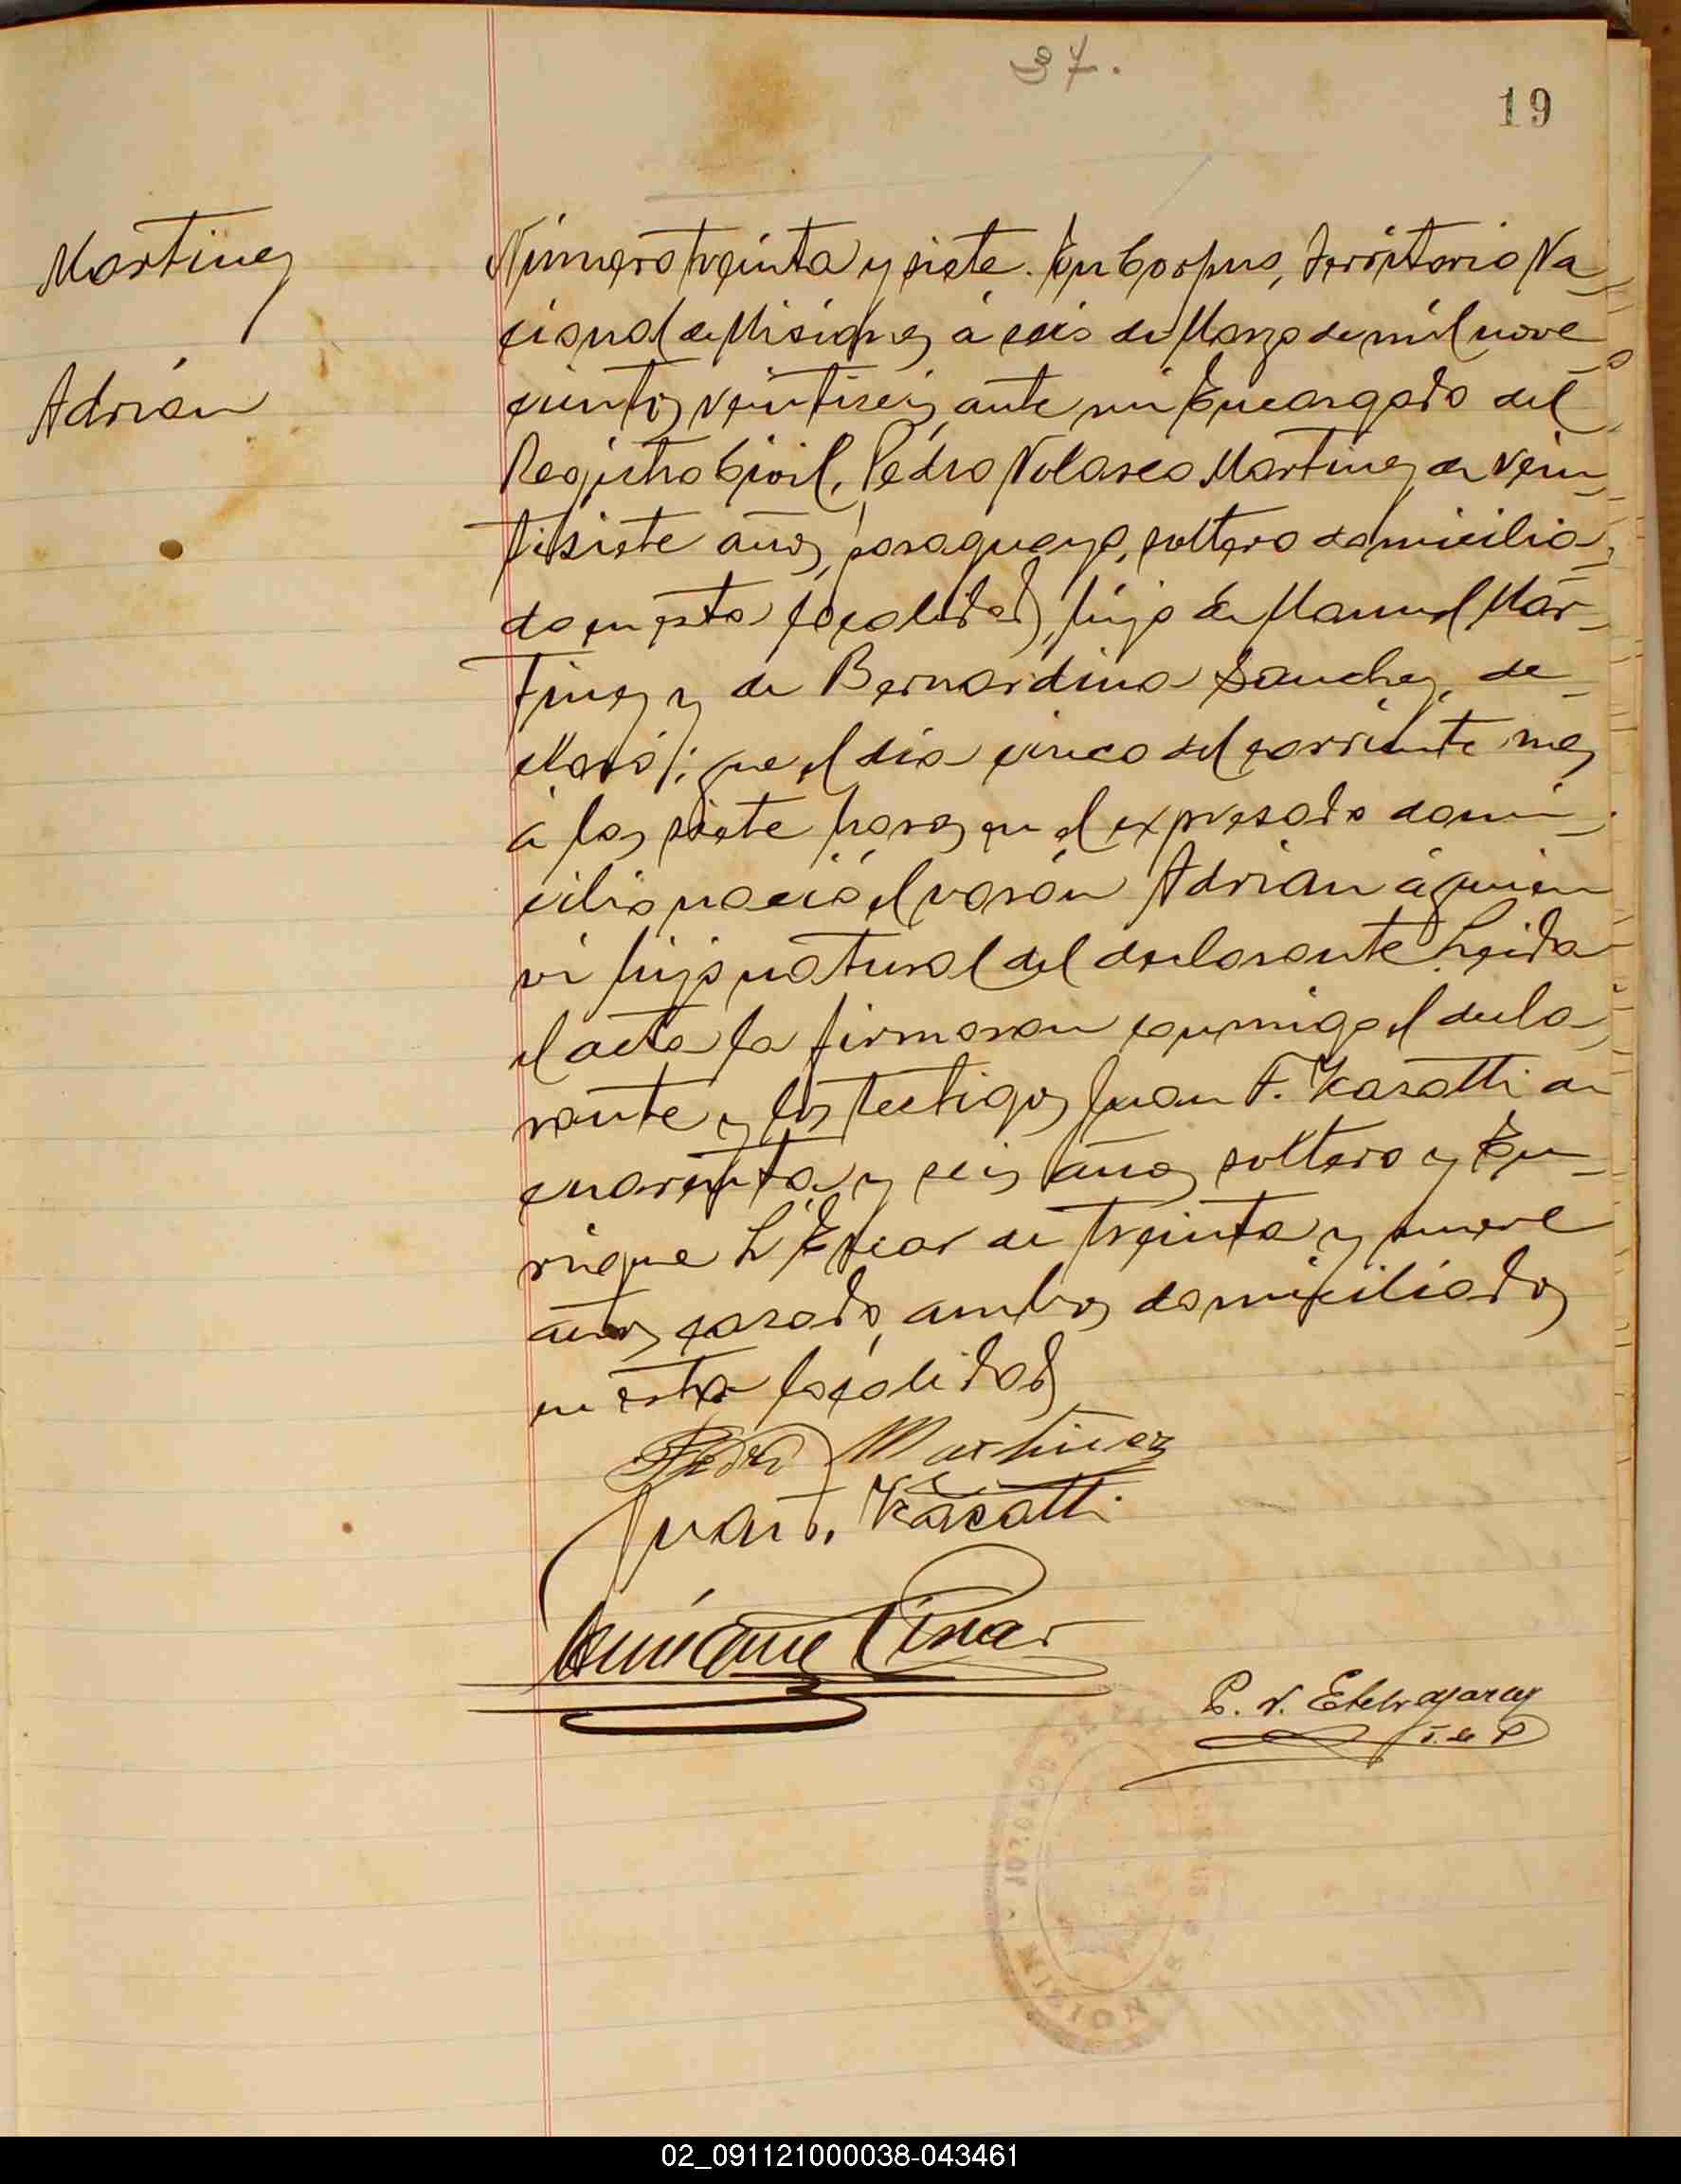 37.
19
Martinez
Adrián
Número treinta y siete. En Corpus, Territorio Na-
cional de Misiones, á seis de Marzo de mil nove
cientos veintiseis, ante mi Encargado del
Registro Civil, Pedro Nolasco Martinez de vein-
tisiete años, paraguayo, soltero domicilia-
do en esta localidad, hijo de Manuel Mar-
tinez y de Bernardina Sanchez, de-
claró: que el dia cinco del corriente mes
á las siete horas en el expresado domi-
cilio nació el varón Adrián á quien
vi hijo natural del declarante Leida
el acta la firmaron conmigo el decla-
rante y los testigos Juan F. Kasatti de
cuarenta y seis años soltero y En-
rique de treinta y nueve
años casado, ambos domiciliados
en esta localidad
Pedro Martinez
Juan F. Kasatti
P. N. Etchegaray
J. de P
02_091121000038-043461